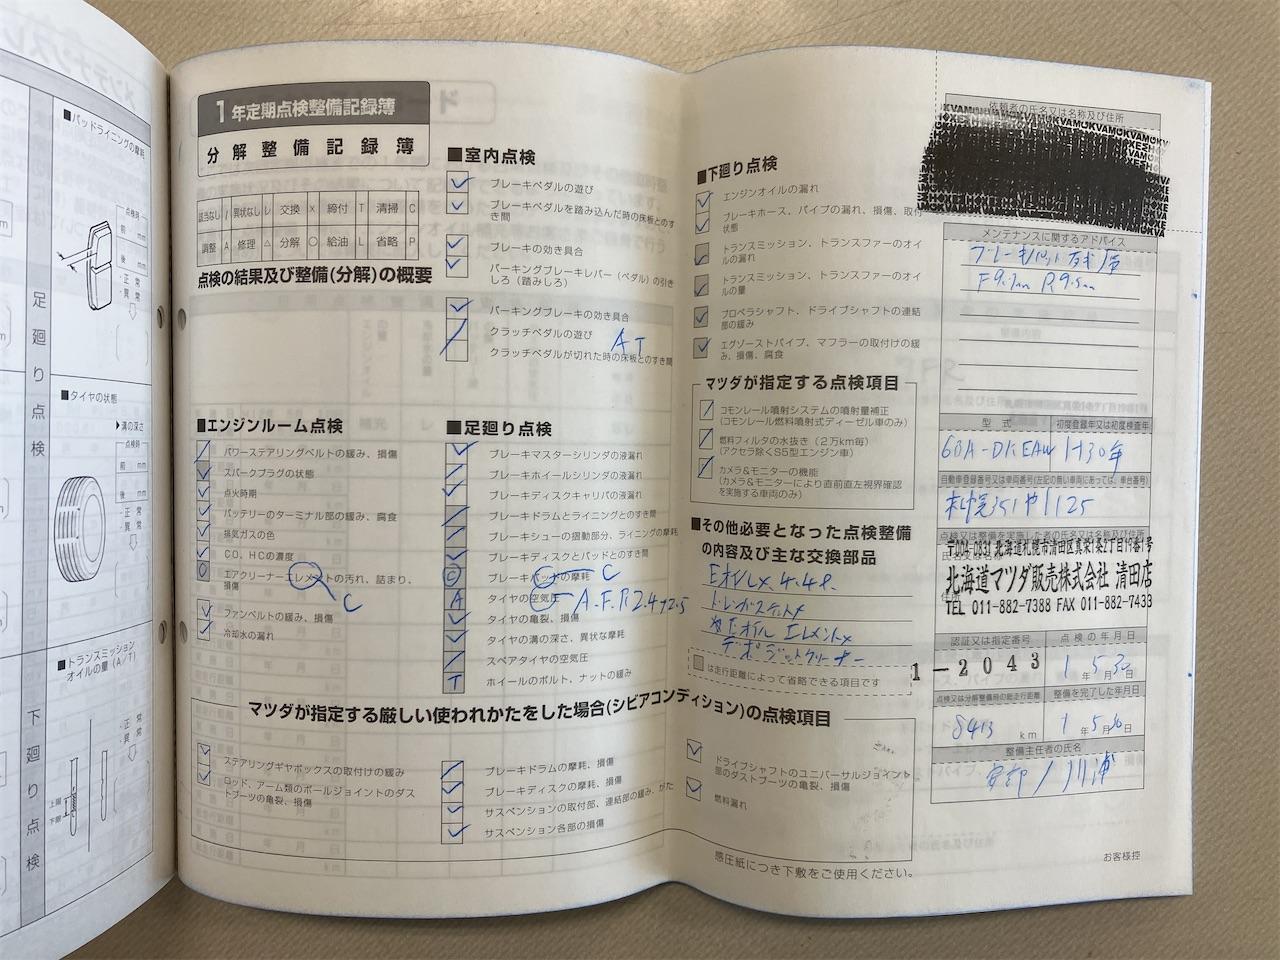 ■パッドライニングの摩耗
点検時
前 mm
後 mm
・正常
・異常
足廻り点検
■タイヤの状態
▶溝の深さ
点検時
前 mm
後 mm
・正常
・異常
■トランスミッション
オイルの量(A/T)
・正常
・異常
上限
下限
下廻り点検
1年定期点検整備記録簿
分解整備記録簿
該当なし / 異状なし レ 交換 × 締付 T 清掃 C
調整 A 修理 △ 分解 ○ 給油 L 省略 P
点検の結果及び整備(分解)の概要
■エンジンルーム点検
パワーステアリングベルトの緩み、損傷
スパークプラグの状態
点火時期
バッテリーのターミナル部の緩み、腐食
排気ガスの色
CO、HCの濃度
エアクリーナーエレメントの汚れ、詰まり、
損傷
C
ファンベルトの緩み、損傷
冷却水の漏れ
■室内点検
ブレーキペダルの遊び
ブレーキペダルを踏み込んだ時の床板とのす
き間
ブレーキの効き具合
パーキングブレーキレバー(ペダル)の引き
しろ(踏みしろ)
パーキングブレーキの効き具合
クラッチペダルの遊び
AT
クラッチペダルが切れた時の床板とのすき間
■足廻り点検
ブレーキマスターシリンダの液漏れ
ブレーキホイールシリンダの液漏れ
ブレーキディスクキャリパの液漏れ
ブレーキドラムとライニングとのすき間
ブレーキシューの摺動部分、ライニングの摩耗
ブレーキディスクとパッドとのすき間
C ブレーキパッドの摩耗 C
A タイヤの空気圧 A.F.R2.4→2.5
タイヤの亀裂、損傷
タイヤの溝の深さ、異状な摩耗
スペアタイヤの空気圧
T ホイールのボルト、ナットの緩み
マツダが指定する厳しい使われかたをした場合(シビアコンディション)の点検項目
ステアリングギヤボックスの取付けの緩み
ロッド、アーム類のボールジョイントのダス
トブーツの亀裂、損傷
ブレーキドラムの摩耗、損傷
ブレーキディスクの摩耗、損傷
サスペンションの取付部、連結部の緩み、がた
サスペンション各部の損傷
ドライブシャフトのユニバーサルジョイント
部のダストブーツの亀裂、損傷
燃料漏れ
■下廻り点検
エンジンオイルの漏れ
ブレーキホース、パイプの漏れ、損傷、取付
状態
トランスミッション、トランスファーのオイ
ルの漏れ
トランスミッション、トランスファーのオイ
ルの量
プロペラシャフト、ドライブシャフトの連結
部の緩み
エグゾーストパイプ、マフラーの取付けの緩
み、損傷、腐食
マツダが指定する点検項目
コモンレール噴射システムの噴射量補正
(コモンレール燃料噴射式ディーゼル車のみ)
燃料フィルタの水抜き(2万km毎)
(アクセラ除くS5型エンジン車)
カメラ&モニターの機能
(カメラ&モニターにより直前直左視界確認
を実施する車両のみ)
■その他必要となった点検整備
の内容及び主な交換部品
Eオイル× 4.4ℓ
ドレンガスケット×
Eオイル エレメント×
デポジットクリーナー
は走行距離によって省略できる項目です
感圧紙につき下敷をご使用ください。
依頼者の氏名又は名称及び住所
メンテナンスに関するアドバイス
ブレーキパット 残厚
F9.7mm R9.5mm
型式 初度登録年又は初度検査年
6BA-DKEAW H30年
自動車登録番号又は車両番号(左記の無い車両にあっては、車台番号)
札幌351や1125
点検又は整備を実施した者の氏名又は名称及び住所
〒004-0831 北海道札幌市清田区真栄1条2丁目19番1号
北海道マツダ販売株式会社 清田店
TEL 011-882-7388 FAX 011-882-7433
認証又は指定番号 点検の年月日
1-2043 1年5月30日
点検又は分解整備時の総走行距離 整備を完了した年月日
8413 km 1年5月30日
整備主任者の氏名
お客様控